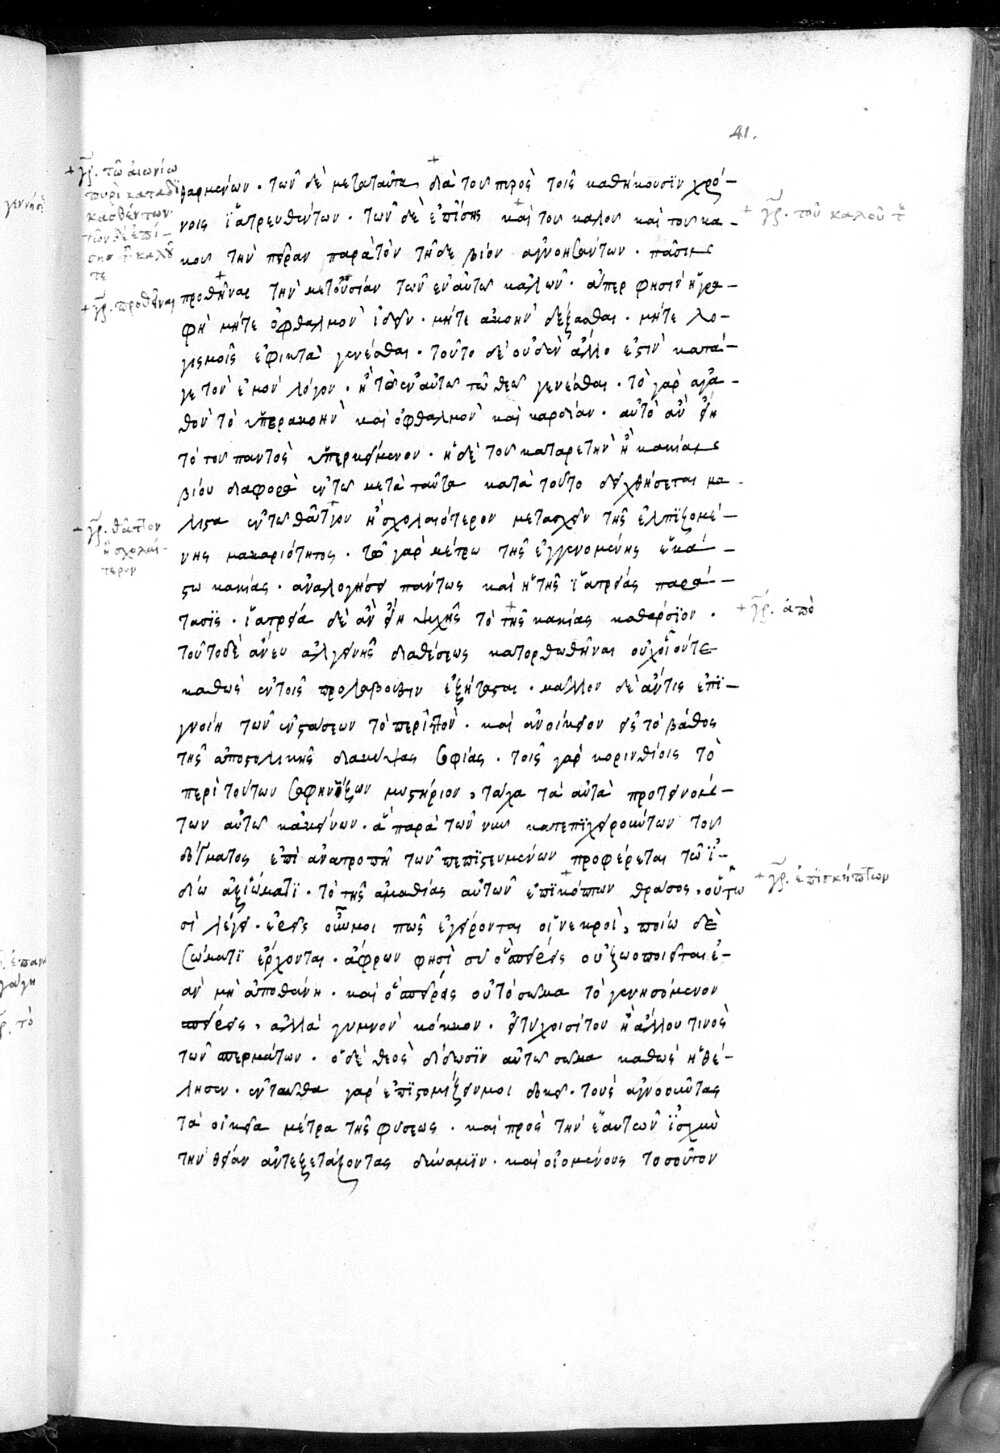 41.
θαρμένων · τῶν δὲ μεταταῦτα διὰ τοῦ πυρὸς τοῖς καθήκουσϊν χρό–
νοις ἰατρευθέντων · τῶν δὲ ἐπίσης καὶ τοῦ καλοῦ καὶ τοῦ κα–
κοῦ τὴν πεῖραν παρὰ τὸν τῇδε βίον ἀγνοησάντων · πᾶσι
προθῆναι τὴν μετουσίαν τῶν ἐν αὐτῷ καλῶν · ἅπερ φησὶν ἡ γρα–
φὴ μήτε ὀφθαλμὸν ἰδεῖν · μήτε ἀκοὴν δέξασθαι · μήτε λο–
γισμοῖς ἐφικτὰ γενέσθαι · τοῦτο δὲ οὐδὲν ἄλλο ἐστὶν κατά–
γε τὸν ἐμὸν λόγον · ἢ τὸ ἐν αὐτῷ τῷ θεῷ γενέσθαι · τὸ γὰρ ἀγα–
θὸν τὸ ὑπὲρ ἀκοὴν καὶ ὀφθαλμὸν καὶ καρδίαν · αὐτὸ ἂν εἴη
τὸ τοῦ παντὸς ὑπερκείμενον · ἡ δὲ τοῦ κατ ἀρετὴν ἢ κακίαν
βίου διαφορὰ ἐν τῷ μετὰ ταῦτα κατὰ τοῦτο δειχθήσεται μα–
λιστα ἐν τῷ θᾶττον ἢ σχολαιότερον μετασχεῖν τῆς ἐλπιζομέ–
νης μακαριότητος · τῷ γὰρ μέτρῳ τῆς ἐγγενομένης ἑκά–
στῳ κακίας · ἀναλογήσει πάντως καὶ ἡ τῆς ἰατρείας παρά–
τασϊς · ἰατρεία δὲ ἂν εἴη ψυχῆς τὸ τῆς κακίας καθάρσϊον ·
τοῦτο δὲ ἄνευ ἀλγεινῆς διαθέσεως κατορθωθῆναι οὐχ οἷόντε
καθὼς ἐν τοῖς προλαβοῦσιν ἐξήτασται · μᾶλλον δὲ ἄν τις ἐπϊ–
γνοίη τῶν ἐνστάσεων τὸ περιττὸν · καὶ ἀνοίκειον εἰς τὸ βάθος
τῆς ἀποστολικῆς διακύψας σοφίας · τοῖς γὰρ κορινθίοις τὸ
περὶ τούτων σαφηνίζων μυστήριον, τάχα τὰ αὐτὰ προτεινομέ–
των αὐτῷ κἀκείνων · ἃ παρὰ τῶν νῦν κατεπιχειρούντων τοῦ
δόγματος ἐπὶ ἀνατροπῇ τῶν πεπϊστευμένων προφέρεται τῷ ἰ–
δίῳ ἀξιώματϊ · τὸ τῆς ἀμαθίας αὐτῶν ἐπϊκόπτων θράσος, οὕτω
σὶ λέγει · ἐρεῖς οὖν μοι πῶς ἐγείρονται οἱ νεκροὶ, ποίῳ δὲ
σώματϊ ἔρχονται · ἄφρων φησὶ σὺ ὃ σπείρεις οὐ ζωοποιεῖται ἐ–
ὰν μὴ ἀποθάνῃ · καὶ ὃ σπείρεις οὐ τὸ σῶμα τὸ γενησόμενον
σπείρεις, ἀλλὰ γυμνὸν κόκκον · εἰ τύχοι σίτου ἢ ἄλλου τινὸς
τῶν σπερμάτων · ὁ δὲ θεὸς δίδωσϊν αὐτῷ σῶμα καθὼς ἠθέ–
λησεν · ἐνταῦθα γὰρ ἐπϊστομίζειν μοι δοκεῖ · τοὺς ἀγνοοῦντας
τὰ οἰκεῖα μέτρα τῆς φύσεως · καὶ πρὸς τὴν ἑαυτῶν ἰσχὺν
τὴν θείαν ἀντεξετάζοντας δύναμϊν · καὶ οἰομένους τοσοῦτον
+ γρ. τῷ αἰωνίῳ
πυρὶ καταδι
κασθέντων
τῶν δὲ ἐπί–
σης καλοῦ
τε
+ γρ. προθεῖναι
+ γρ. θᾶττον
ἢ σχολαι–
τερον
+ γρ. τοῦ καλοῦ τε
+ γρ. ἀπὸ
+ γρ. ἐπϊσκήπτων
γεννήσει
γρ. τὸ